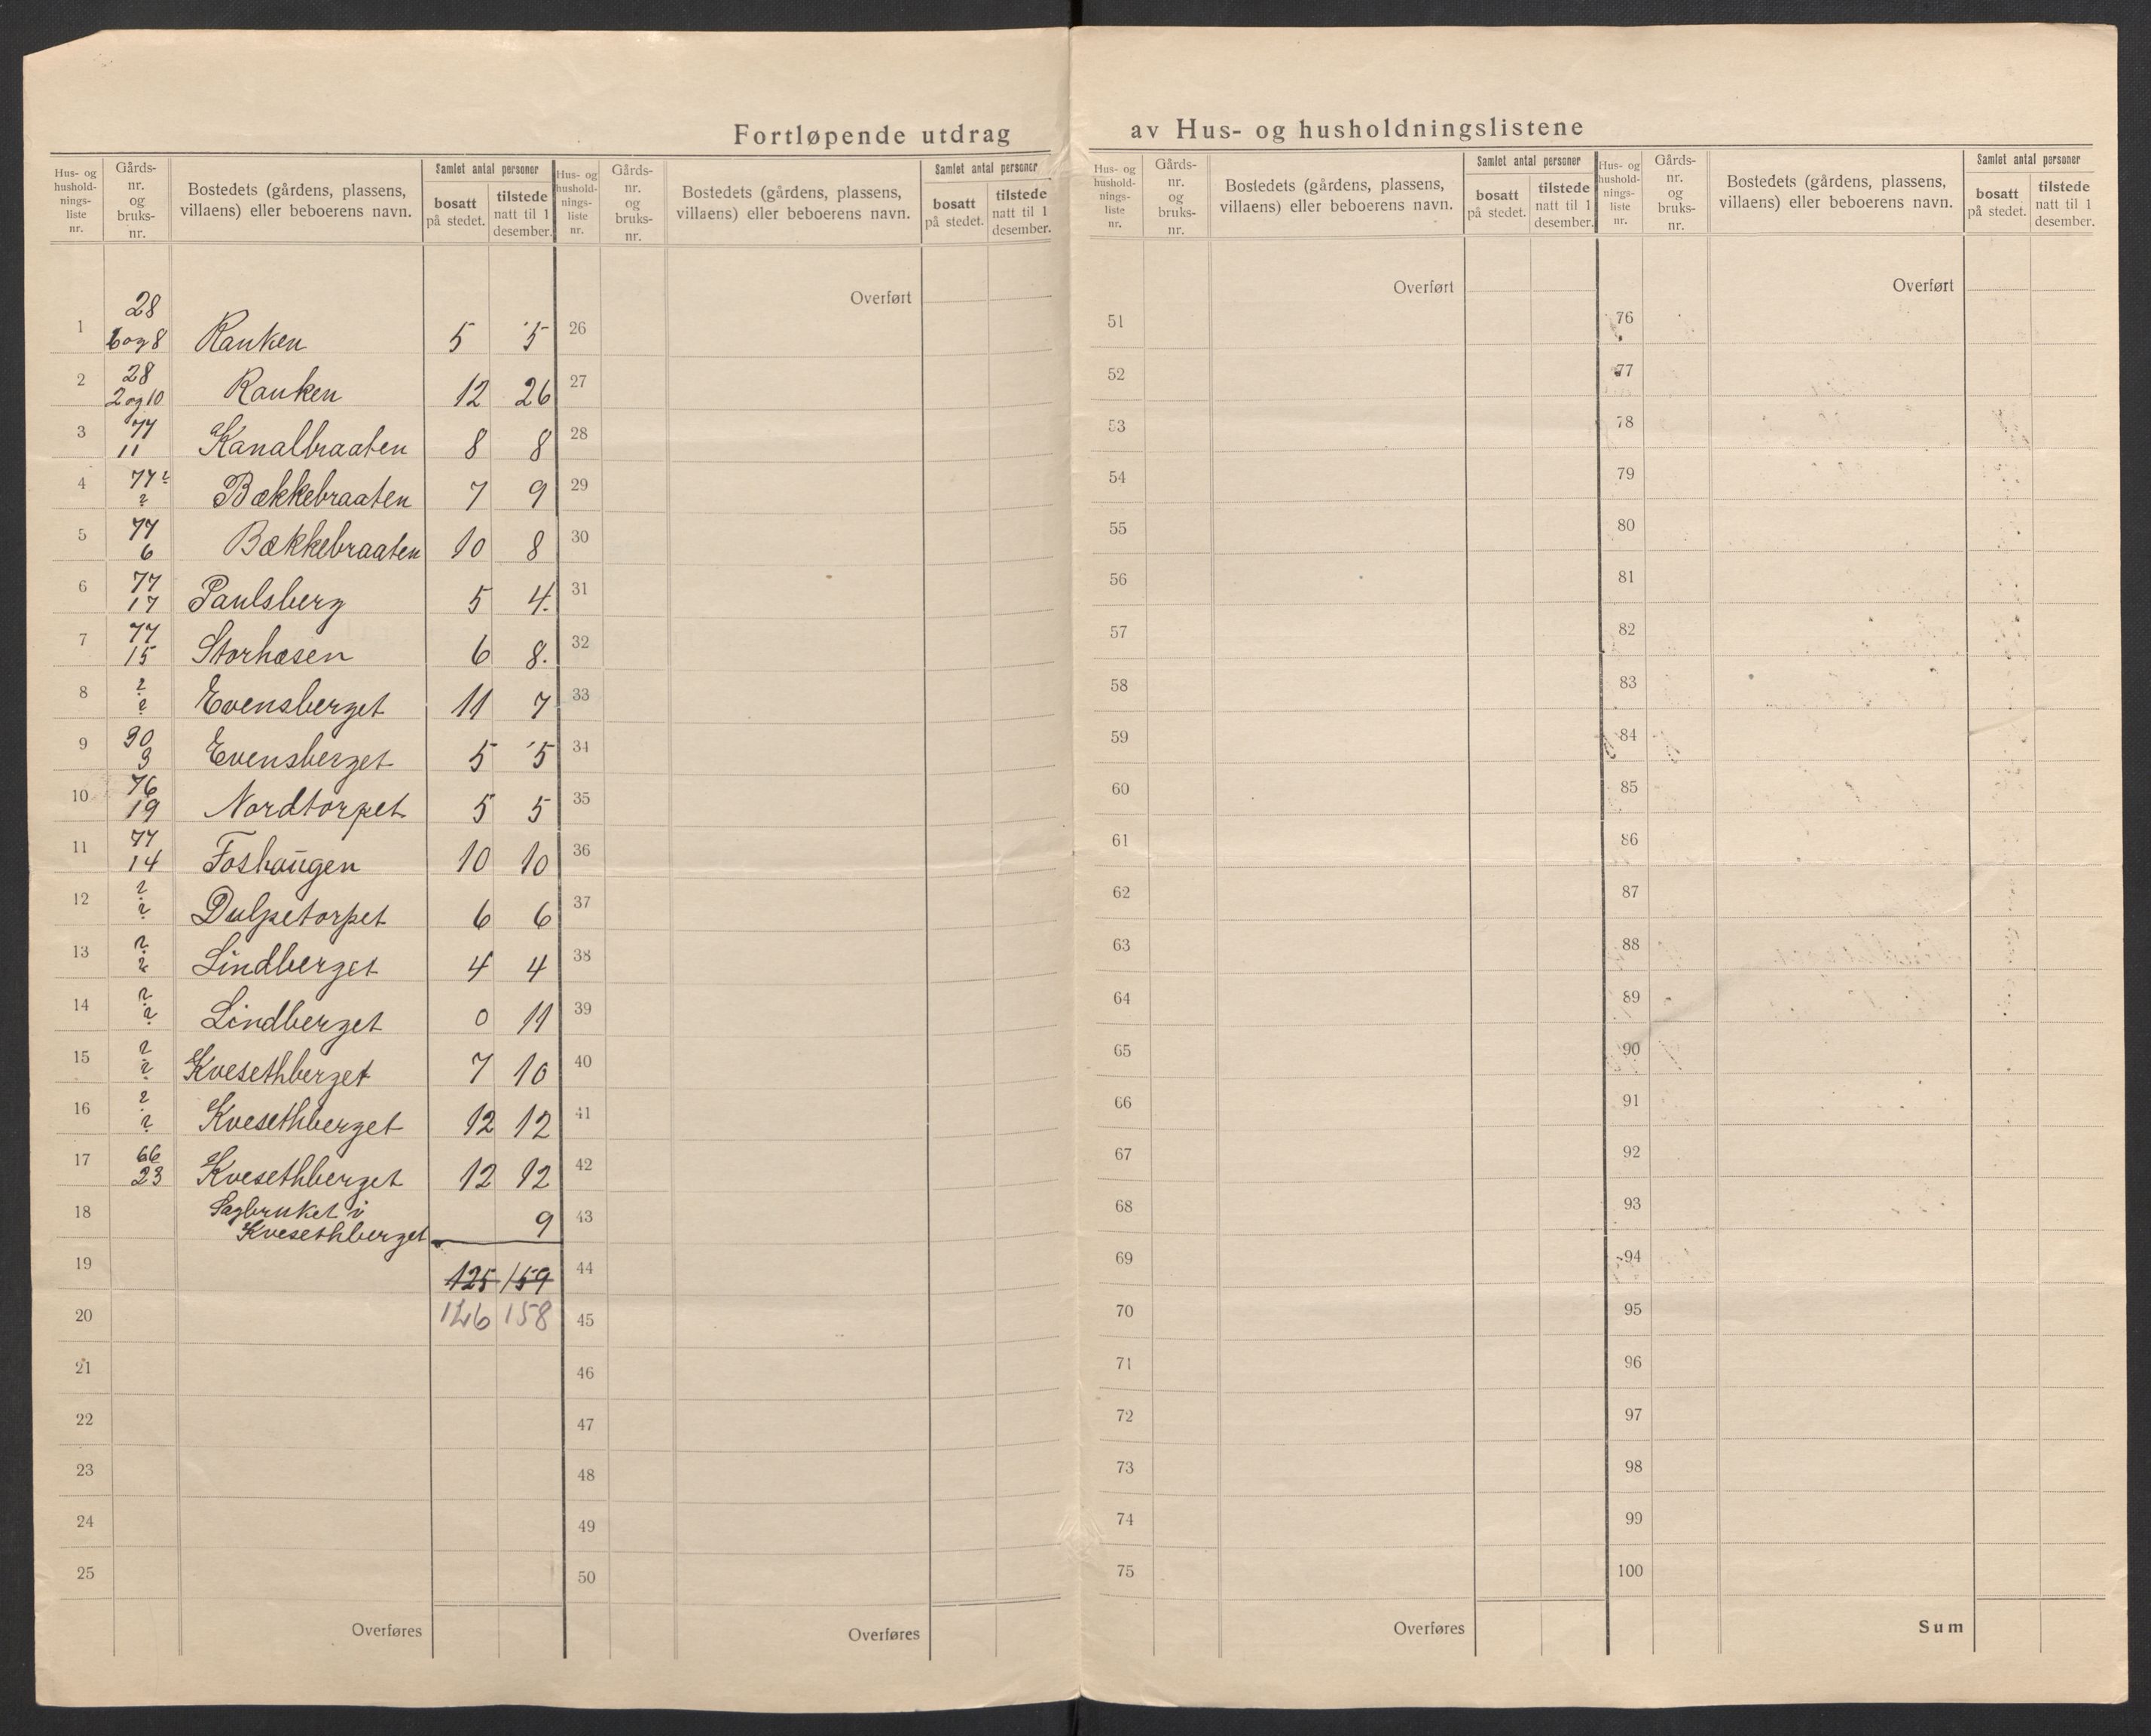 Fortløpende utdrag av Hus- og husholdningslistene
Hus- og hushold-nings-liste nr. | Gårds-nr. og bruks-nr. | Bostedets (gårdens, plassens, villaens) eller beboerens navn. | Samlet antal personer | bosatt på stedet. | tilstede natt til 1 desember.
Hus- og hushold-nings-liste nr. | Gårds-nr. og bruks-nr. | Bostedets (gårdens, plassens, villaens) eller beboerens navn. | Samlet antal personer | bosatt på stedet. | tilstede natt til 1 desember.
Hus- og hushold-nings-liste nr. | Gårds-nr. og bruks-nr. | Bostedets (gårdens, plassens, villaens) eller beboerens navn. | Samlet antal personer | bosatt på stedet. | tilstede natt til 1 desember.
Hus- og hushold-nings-liste nr. | Gårds-nr. og bruks-nr. | Bostedets (gårdens, plassens, villaens) eller beboerens navn. | Samlet antal personer | bosatt på stedet. | tilstede natt til 1 desember.
1 28 6 og 8 Ranken 5 5
2 28 2 og 10 Ranken 12 26
3 77 11 Kanalbraaten 8 8
4 77? ? Bækkebraaten 7 9
5 77 6 Bækkebraaten 10 8
6 77 17 Paulsberg 5 4.
7 77 15 Storhasen 6 8.
8 ? ? Evensberget 11 7
9 90 3 Evensberget 5 5
10 76 19 Nordtorpet 5 5
11 77 14 Foshaugen 10 10
12 ? ? Dulpetorpet 6 6
13 ? ? Lindberget 4 4
14 ? ? Lindberget 0 11
15 ? ? Kvesethberget 7 10
16 ? ? Kvesethberget 12 12
17 66 23 Kvesethberget 12 12
18 Sagbruket i
Kvesethberget 9
19 125 159
20 126 158
21
22
23
24
25
Overføres
Overført
26
27
28
29
30
31
32
33
34
35
36
37
38
39
40
41
42
43
44
45
46
47
48
49
50
Overføres
Overført
51
52
53
54
55
56
57
58
59
60
61
62
63
64
65
66
67
68
69
70
71
72
73
74
75
Overføres
Overført
76
77
78
79
80
81
82
83
84
85
86
87
88
89
90
91
92
93
94
95
96
97
98
99
100
Sum